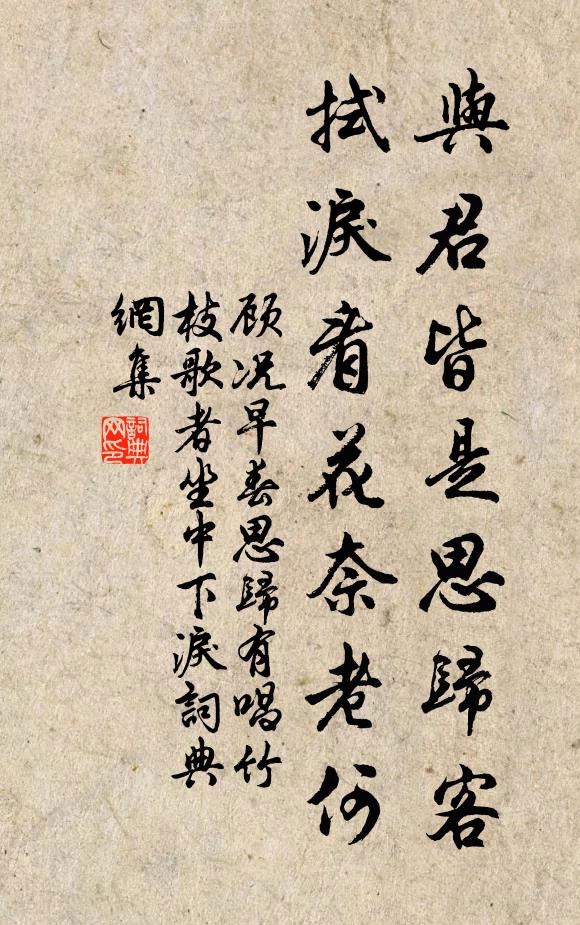 與君皆是思歸客
拭淚看花奈老何
顾况早春思歸有唱竹
枝歌者坐中下淚詞典
網集
詞典
网印